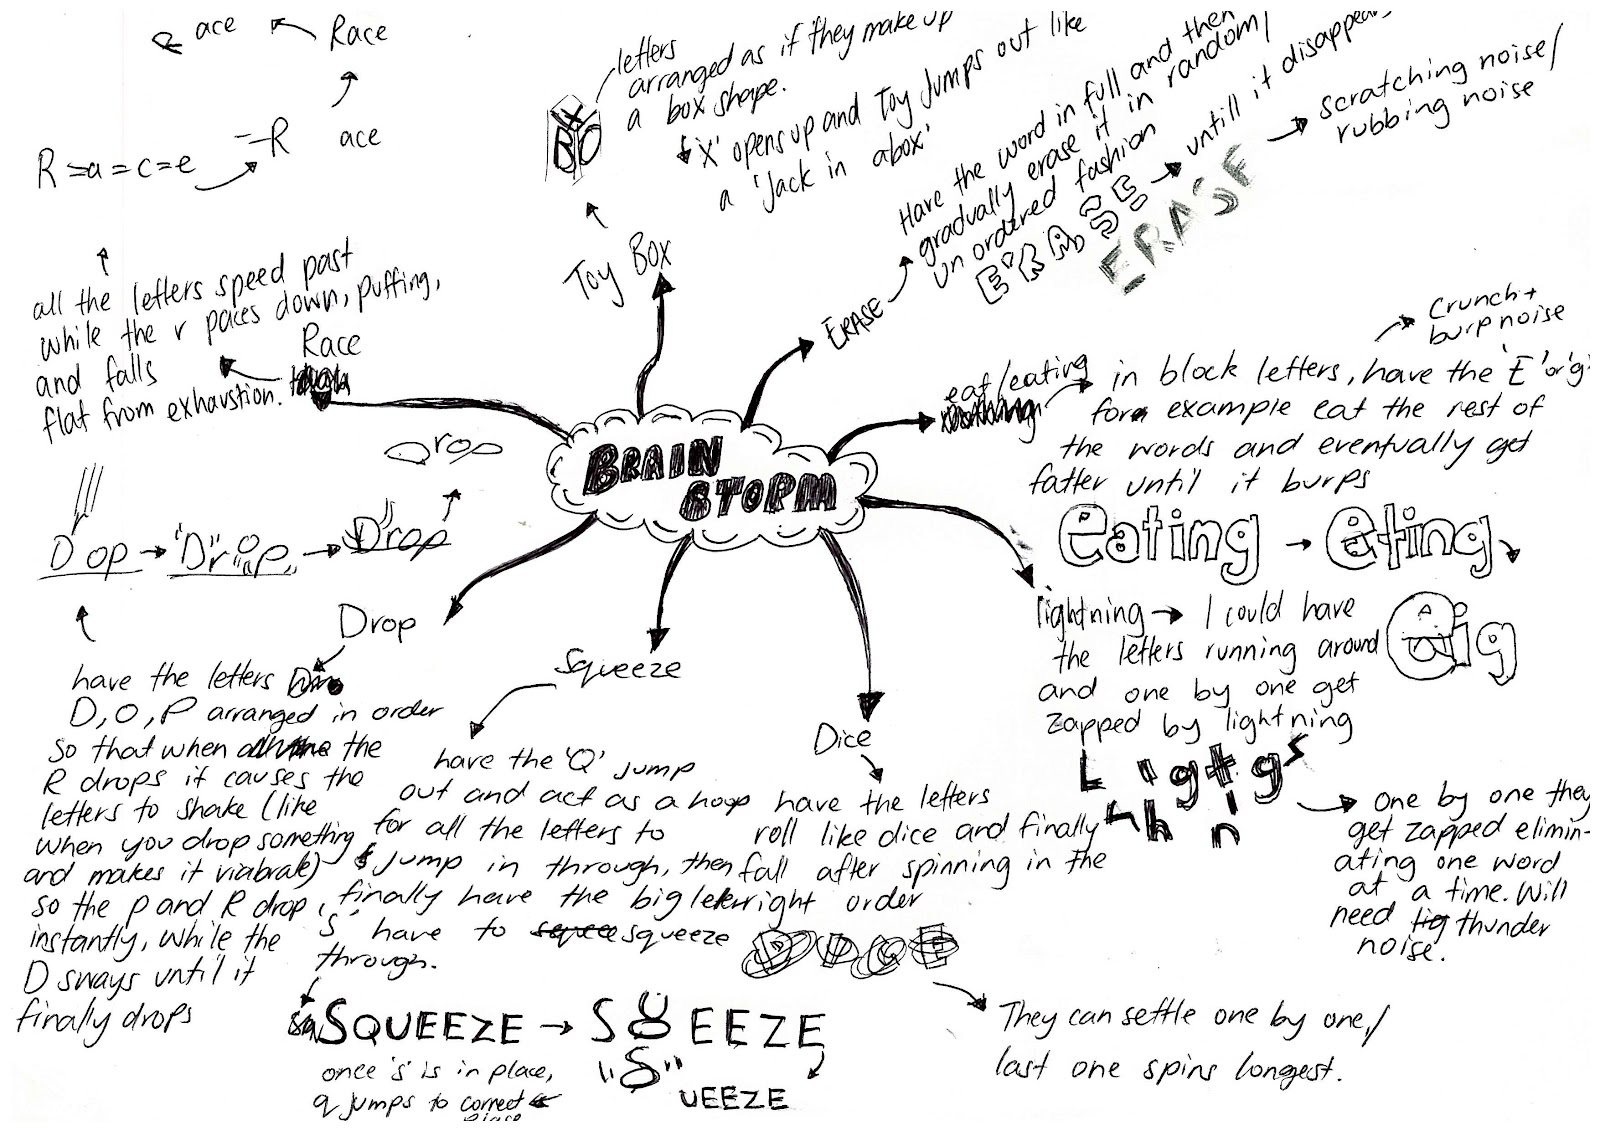 ace
Race
R
ace
R=a=c=e
all the letters speed past
while the r paces down, puffing,
and falls
flat from exhaustion.
Race
letters
arranged as if they make up
a box shape.
'X' opens up and Toy Jumps out like
a 'Jack in abox'
BOX
Toy Box
Have the word in full and then
gradually erase it in random/
un ordered fashion
ERASE
untill it disappears
ERASE
scratching noise/
rubbing noise
ERASE
eat/eating
in block letters, have the 'E' or 'g'
for example eat the rest of
the words and eventually get
fatter until it burps
Crunch +
burp noise
eating
eting
eig
BRAIN
STORM
Drop
D op
"Drop"
Drop
Drop
have the letters
D, O, P arranged in order
so that when the
R drops it causes the
letters to shake (like
when you drop something
and makes it viabrate)
so the p and R drop
instantly, while the
D sways until it
finally drops
Squeeze
have the 'Q' jump
out and act as a hoop
for all the letters to
jump in through, then
finally have the big letter
'S' have to squeeze
through.
SQUEEZE
S EEZE
"S"
UEEZE
once 's' is in place,
q jumps to correct
place
Dice
have the letters
roll like dice and finally
fall after spinning in the
right order
DICE
They can settle one by one,/
last one spins longest.
lightning
I could have
the letters running around
and one by one get
zapped by lightning
L i g t g s
h n i n
One by one they
get zapped elimin-
ating one word
at a time. Will
need thunder
noise.